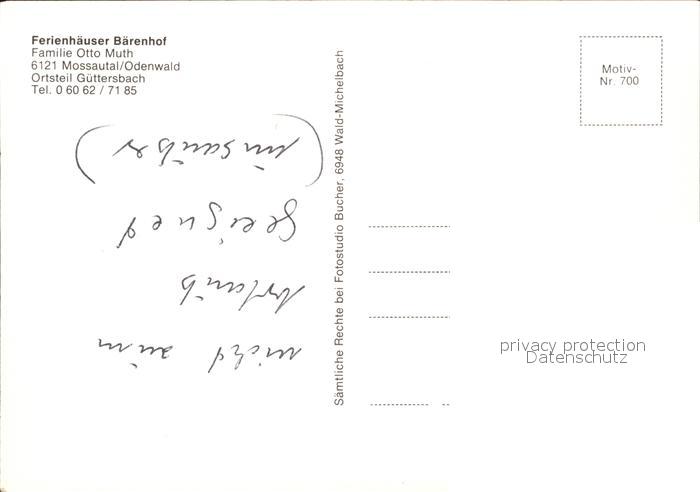 Ferienhäuser Bärenhof
Familie Otto Muth
6121 Mossautal/Odenwald
Ortsteil Güttersbach
Tel. 0 60 62 / 71 85
Motiv-
Nr. 700
Sämtliche Rechte bei Fotostudio Bucher, 6948 Wald-Michelbach
nicht zum
Urlaub
geeignet
(unsauber)
privacy protection
Datenschutz